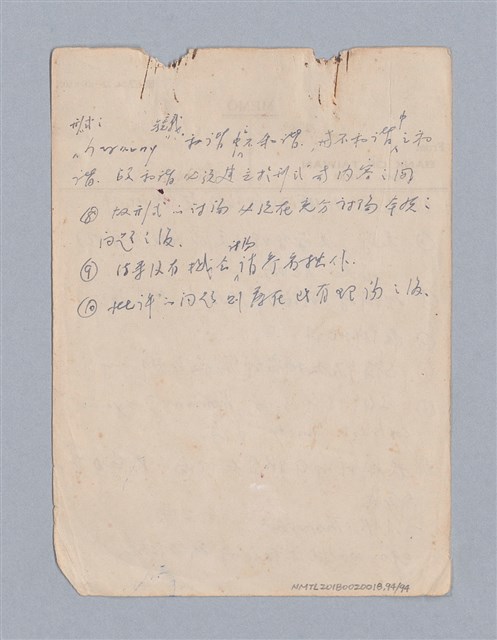 形式:
"harmony 和諧 和諧. 或不和諧中之和
諧. 故和諧必須建立於形式與內容之間
⑧ 故形式"的討論必須在充分討論本質之
問題之後.
⑨ 沒有機會請參考拙作.
⑩ 批評"的問題則存在 有理論之後.
NMTL20180020018,94/94